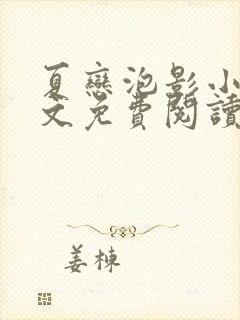 夏戀泡影小
文免費閱讀
姜棟